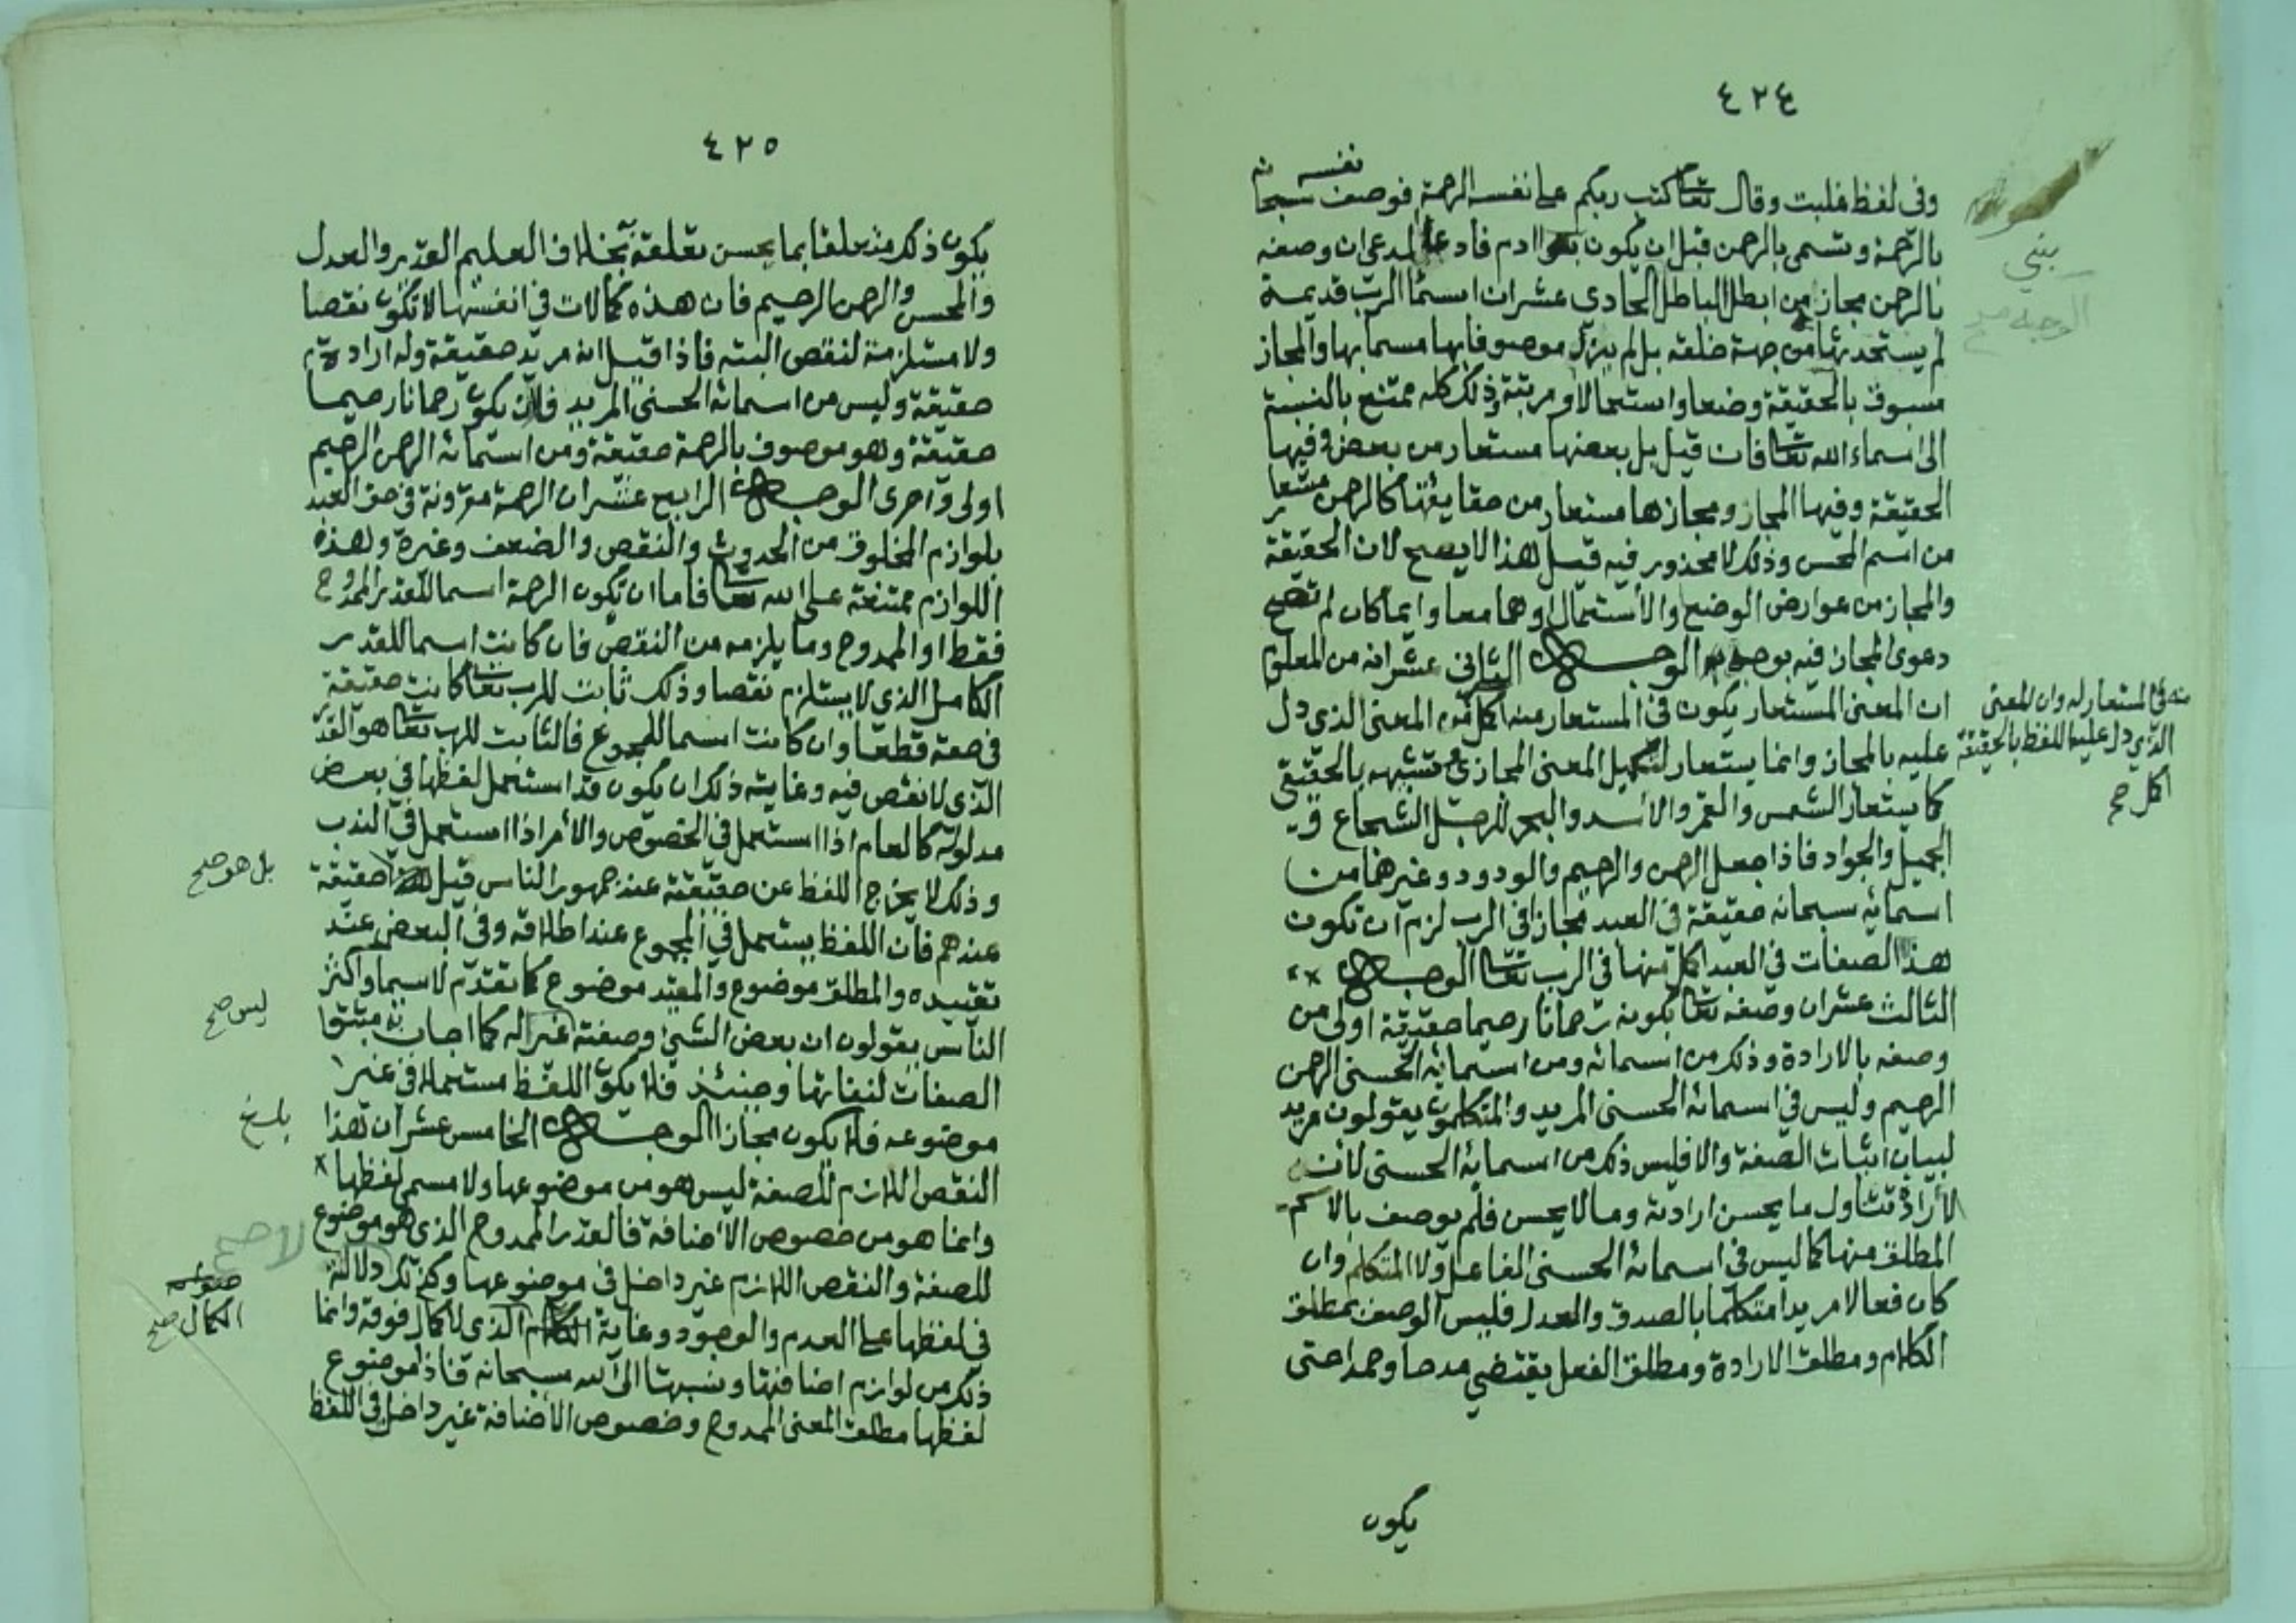 ٤٢٤
وفي لفظ غلبت وقال تعا كتب ربكم على نفسه الرحمة فوصف نفسه سبحانه
بالرحمة وتسمى بالرحمن قبل ان يكون بنوا ادم فادعا المدعى ان وصفه
بالرحمن مجاز من ابطل الباطل الحادى عشر ان اسمآ الرب قديمة
لم يستحدثها من جهة خلقه بل لم يزل موصوفا بها مسما بها والمجاز
مسبوق بالحقيقة وضعا واستعمالا ومرتبة وذلك كله ممتنع بالنسبة
الى اسماء الله تعا فان قيل بل بعضها مستعار من بعض وفيها
الحقيقة وفيها المجاز ومجازها مستعار من حقايقها كالرحمن مستعار
من اسم المحسن وذلك لا محذور فيه قيل هذا لا يصح لان الحقيقة
والمجاز من عوارض الوضع والاستعمال او هما معا وايما كان لم تصح
دعوى المجاز فيه بوجه الوجه الثاني عشر انه من المعلوم
ان المعنى المستعار يكون في المستعار منه اكمل منه في المستعار له وان المعنى
الذي دل عليه اللفظ بالحقيقة
اكمل صح
المعنى الذي دل
عليه بالمجاز وانما يستعار لتكميل المعنى المجازى وتشبيهه بالحقيقي
كما يستعار الشمس والقمر والاسد والبحر للرجل الشجاع و
الجميل والجواد فاذا جعل الرحمن والرحيم والودود وغيرهما من
اسمائه سبحانه حقيقة في العبد مجازا في الرب لزم ان تكون
هذه الصفات في العبد اكمل منها في الرب تعا الوجه
الثالث عشر ان وصفه تعا بكونه رحمانا رحيما حقيقة اولى من
وصفه بالارادة وذلك من اسمائه ومن اسمايه الحسنى الرحمن
الرحيم وليس في اسمائه الحسنى المريد والمتكلمون يقولون مريد
لبيان اثبات الصفة والا فليس ذلك من اسمايه الحسنى لان
الارادة تتناول ما يحسن ارادته وما لا يحسن فلم يوصف بالاسم
المطلق منها كما ليس في اسمائه الحسنى الفاعل ولا المتكلم وان
كان فعالا مريدا متكلما بالصدق والعدل فليس الوصف بمطلق
الكلام ومطلق الارادة ومطلق الفعل يقتضي مدحا وحمدا حتى
يكون
٤٢٥
يكون ذلك متعلقا بما يحسن تعلقه بخلاف العليم القدير والعدل
والمحسن والرحمن الرحيم فان هذه كمالات في انفسها لا تكون نقصا
ولا مستلزمة لنقص البته فاذا قيل انه مريد حقيقة وله ارادة
حقيقة وليس من اسمائه الحسنى المريد فلان يكون رحمانا رحيما
حقيقة وهو موصوف بالرحمة حقيقة ومن اسمائه الرحمن الرحيم
اولى واحرى الوجه الرابع عشر ان الرحمة مقرونة في حق العبد
بلوازم المخلوق من الحدوث والنقص والضعف وغيره وهذه
اللوازم ممتنعة على الله تعا فاما ان تكون الرحمة اسما للقدر الممدوح
فقط او الممدوح وما يلزمه من النقص فان كانت اسما للقدر
الكامل الذي لا يستلزم نقصا وذلك ثابت للرب تعا كانت حقيقة
في حقه قطعا وان كانت اسما للمجموع فالثابت للرب تعا هو القدر
الذى لا نقص فيه وغايته ذلك ان يكون قد استعمل لفظها في بعض
مدلوله كالعام اذا استعمل في الخصوص والامر اذا استعمل في الندب
وذلك لا يخرج اللفظ عن حقيقته عند جمهور الناس قيل حقيقة
بل هو صح
عندهم فان اللفظ يستعمل في المجموع عند اطلاقه وفي البعض عند
تقييده والمطلق موضوع والمقيد موضوع كما تقدم لا سيما واكثر
الناس يقولون ان بعض الشئ وصفته غير اله كما اجاب به مثبتوا
ليس صح
الصفات لنفاتها وحينئذ فلا يكون اللفظ مستعملا في غير
موضوعه فلا يكون مجازا الوجه الخامس عشر ان هذا
النقص اللازم للصفة ليس هو من موضوعها ولا مسمى لفظها
وانما هو من خصوص الاضافة فالقدر الممدوح الذى هو موضوع
لا صح
للصفة والنقص اللازم غير داخل في موضوعها وكذلك دلالة
في لفظها على العدم والوجود وغاية الذى لا كمال فوقه وانما
الكمال صح
ذلك من لوازم اضافتها ونسبهتا الى الله سبحانه فاذا موضوع
لفظها مطلق المعنى الممدوح وخصوص الاضافة غير داخل في اللفظ